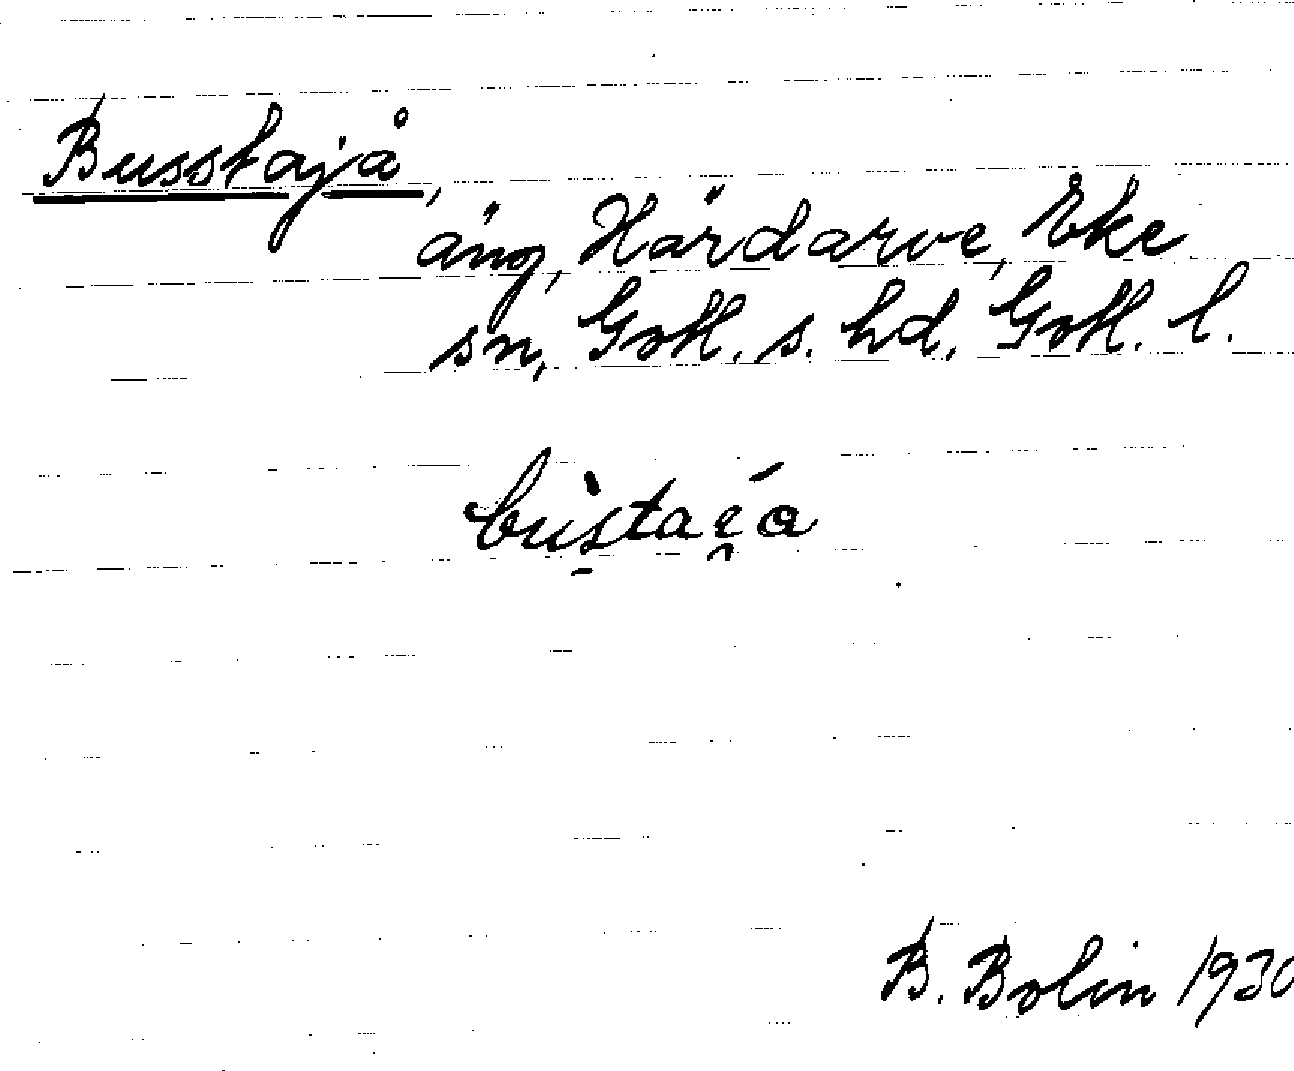 Busstajå,
äng, Härdarve, Eke
sn, Gotl. s. hd, Gotl. l.
B. Bolin 1930